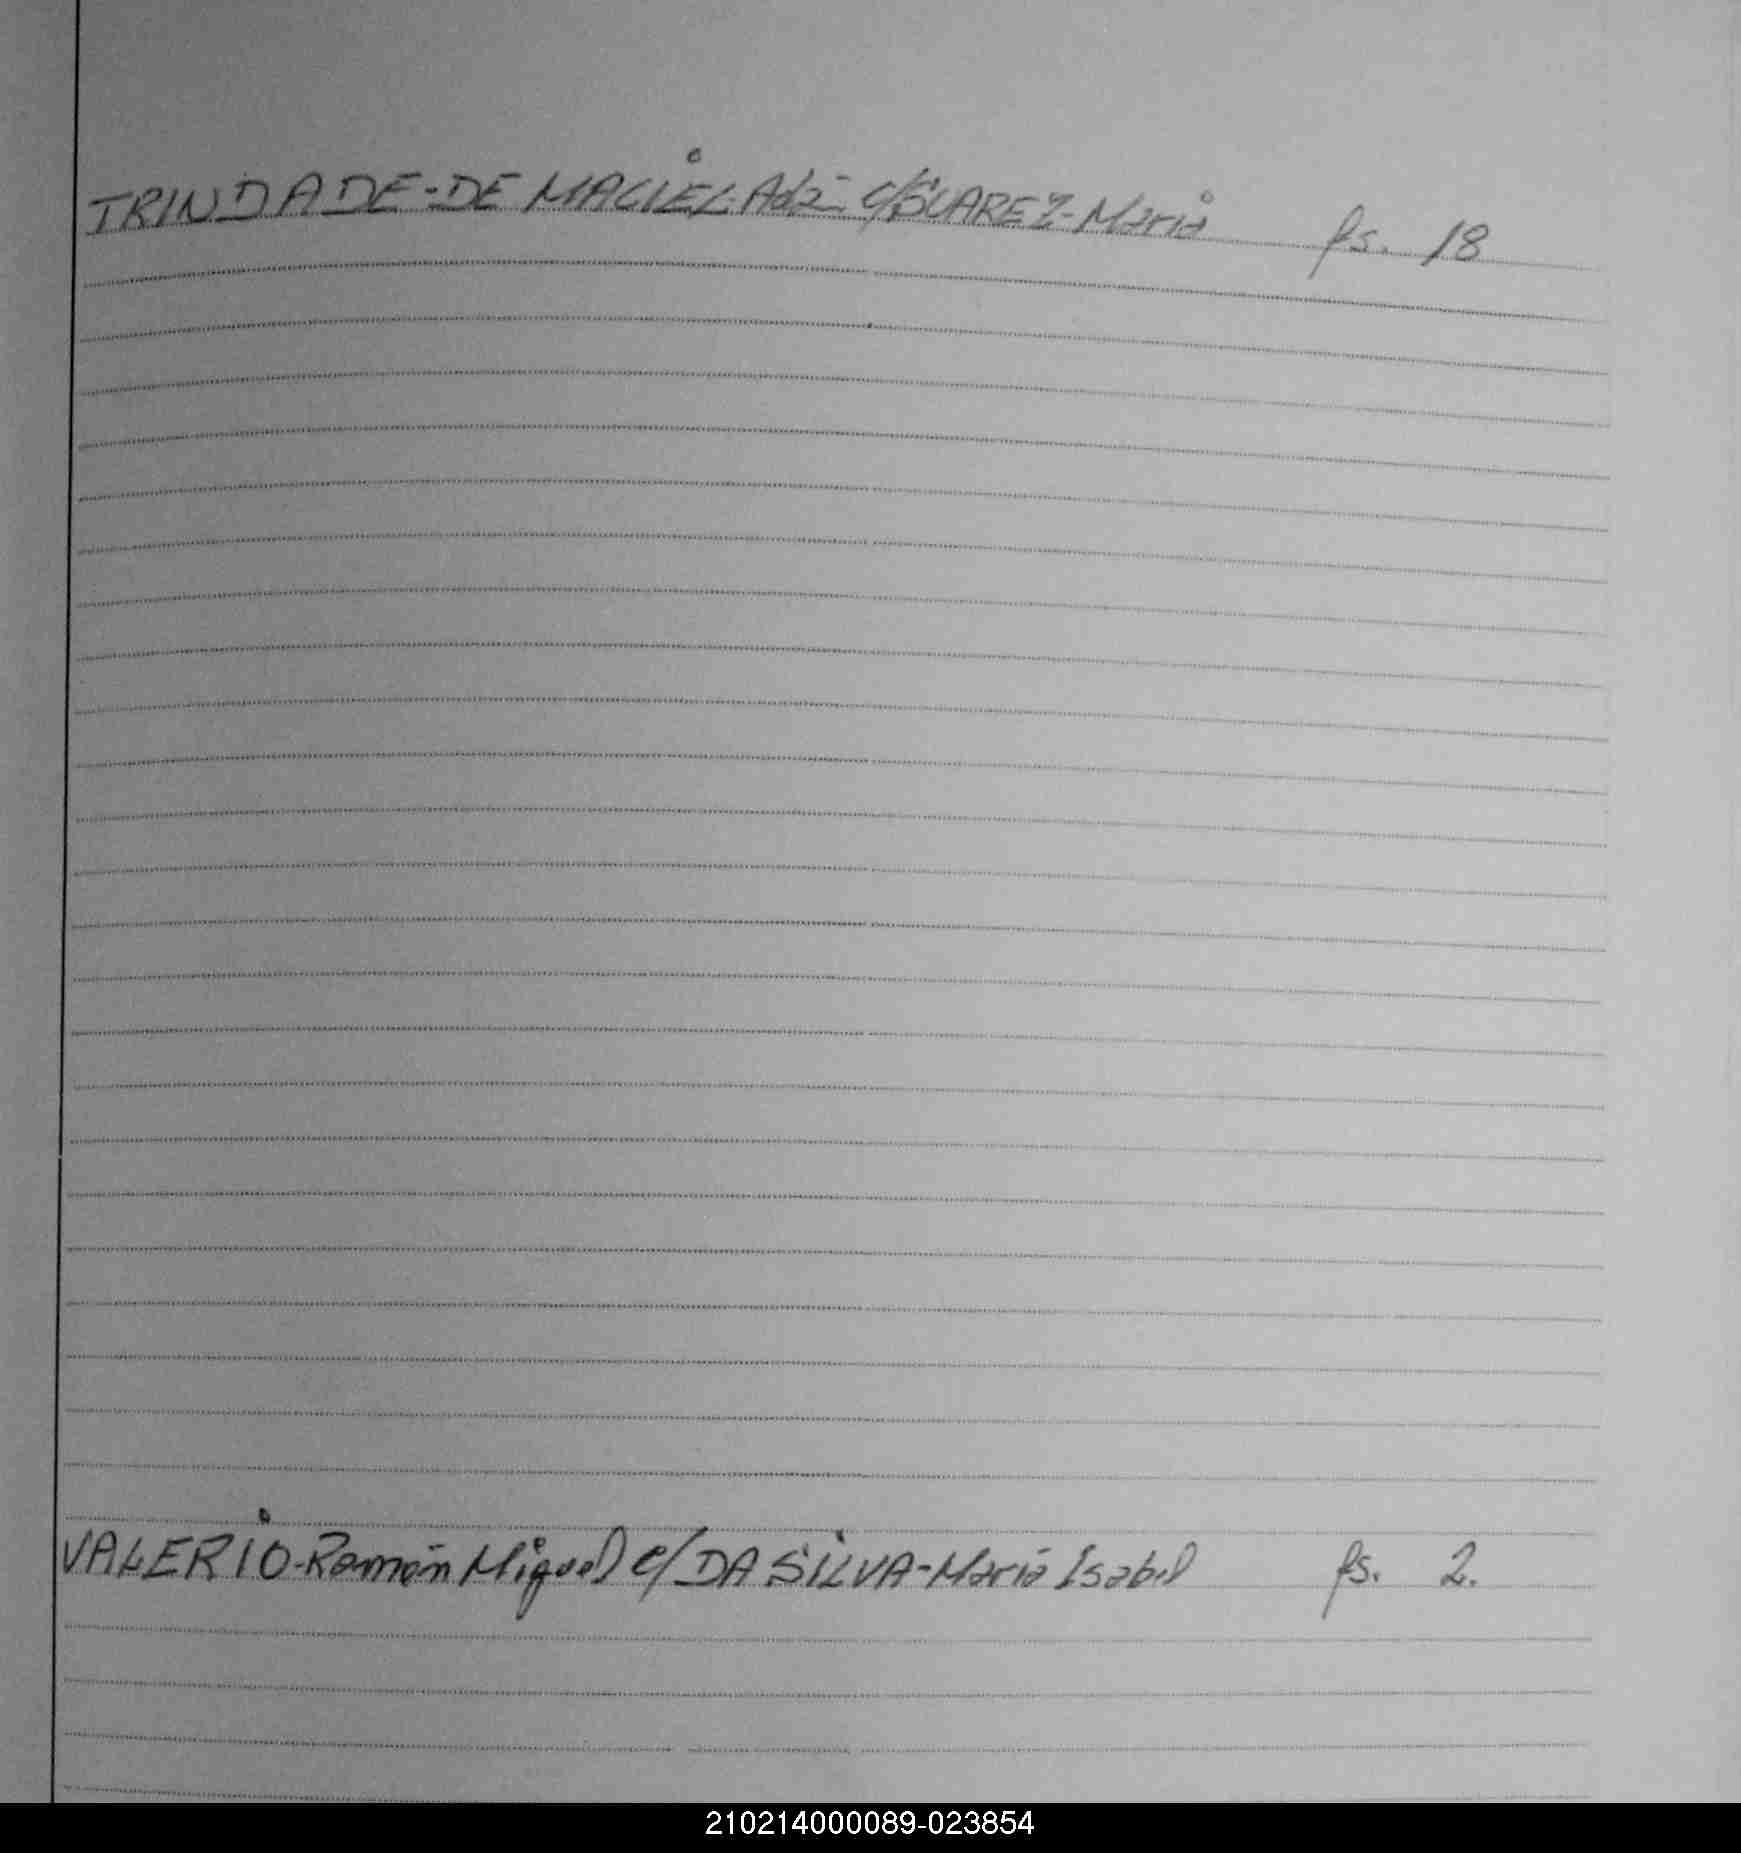 TRINDADE-DE MACIEL-Adá- c/SUAREZ-Maria fs. 18
VALERIO-Ramón Miguel c/DA SILVA-Maria Isabel fs. 2.
210214000089-023854